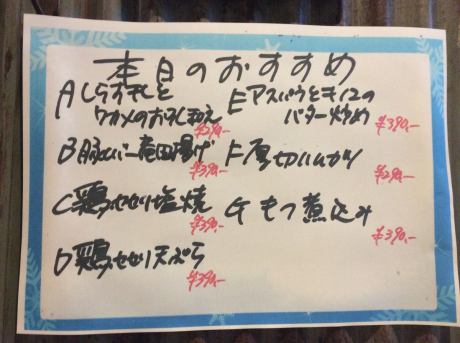 本日のおすすめ
Aしらす干しと
ワカメのおろし和え
¥290-
B豚レバー竜田揚げ
¥390-
C鶏せせり塩焼
¥390-
D鶏せせり天ぷら
¥390-
Eアスパラとキノコの
バター炒め
¥390-
F厚切ハムカツ
¥290-
Gもつ煮込み
¥390-